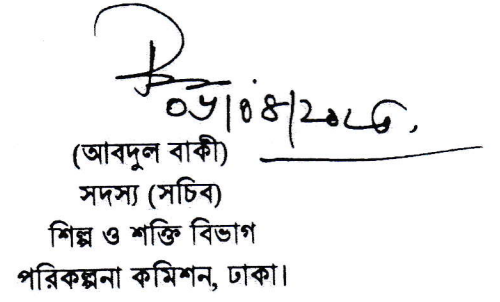 (আবদুল বাকী)
সদস্য (সচিব)
শিল্প ও শক্তি বিভাগ
পরিকল্পনা কমিশন, ঢাকা।